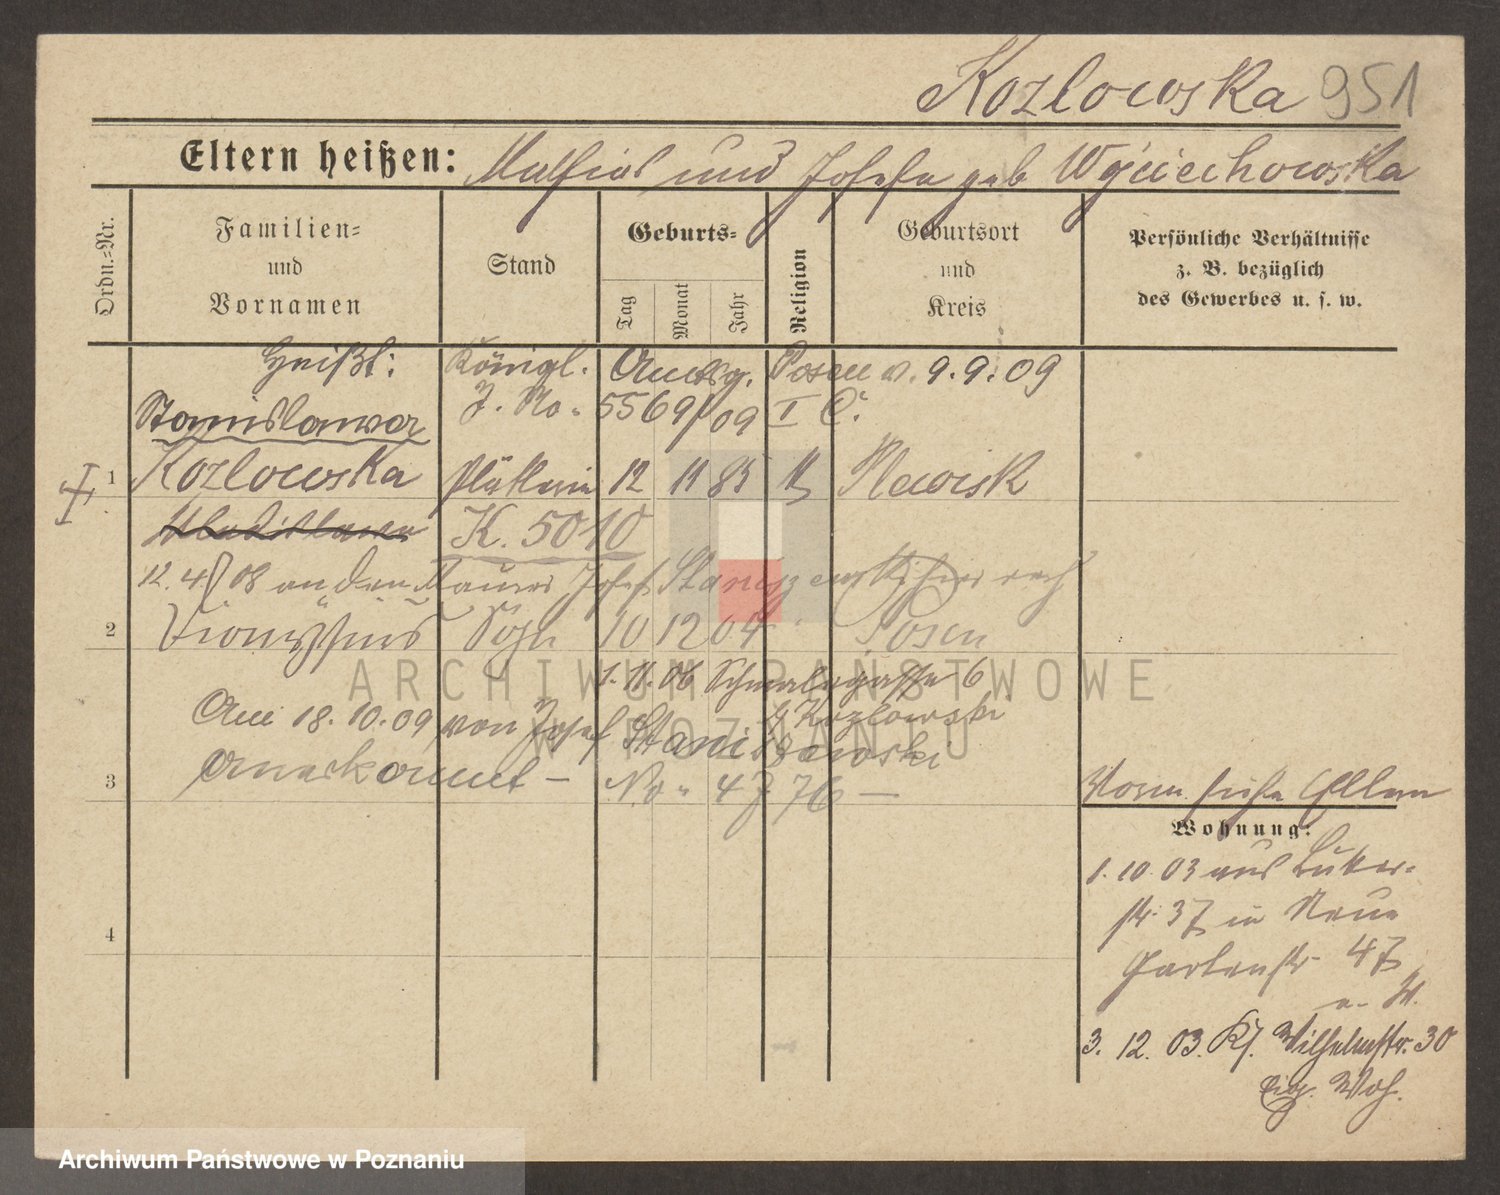 Kozlowska 951
Eltern heißen: Mathias und Josefa geb Wojciechowska
Ordn.-Nr.
Familien-
und
Vornamen
Stand
Geburts-
Tag
Monat
Jahr
Religion
Geburtsort
und
Kreis
Persönliche Verhältnisse
z. B. bezüglich
des Gewerbes u. s. w.
Heißt: Königl. Amtsg. Posen v. 9.9.09
Stanislawa J. No. 5569/09 I C.
1 Kozlowska Plätterin 12 11 85 Plewisk
Wladislawa K. 5010
12. 4 08 an den Maurer Josef
2 Dionysius Sohn 10 12 04 Posen
1. 11. 06 Schmalegasse 6
b Kozlowski
Am 18. 10. 09 von Josef Staniszewski
3 anerkannt — No. 47 76 —
Vorn siehe Eltern
Wohnung:
1. 10. 03 aus
str. 37 in Neue
Gartenstr. 47
4
3. 12. 03. Kl. Wilhelmstr. 30
Eig. Woh.
ARCHIWUM PAŃSTWOWE
W POZNANIU
Archiwum Państwowe w Poznaniu